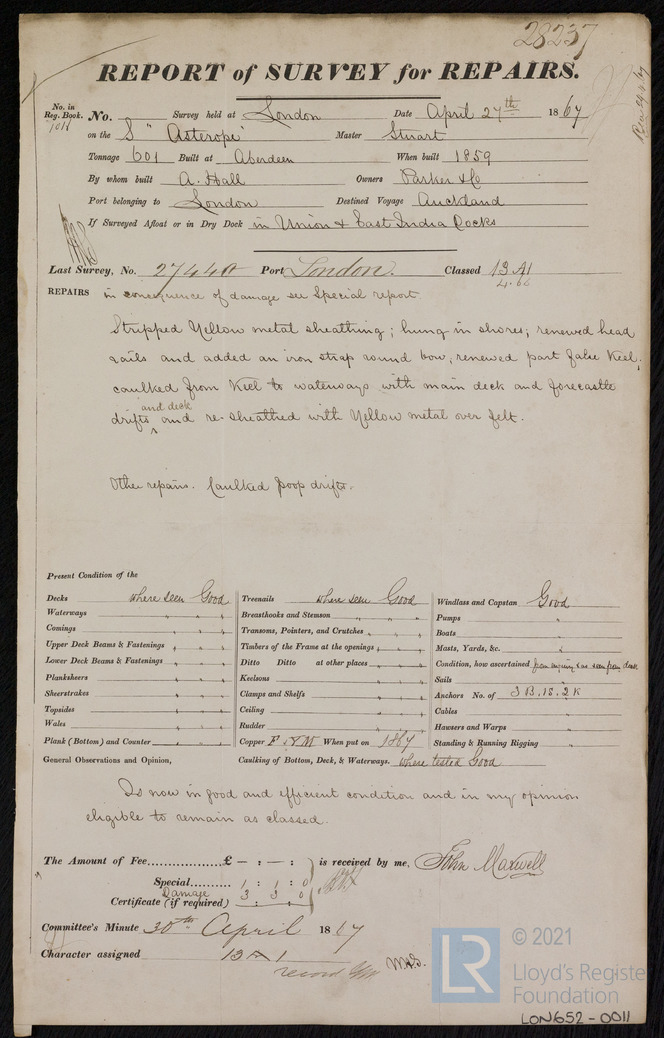 28237
REPORT of SURVEY for REPAIRS.
No. in Reg. Book. No. Survey held at London Date April 27th 1867
1011 on the S "Asterope" Master Stuart
Tonnage 601 Built at Aberdeen When built 1859
By whom built A. Hall Owners Parker & Co
Port belonging to London Destined Voyage Auckland
If Surveyed Afloat or in Dry Dock in Union & East India Docks
Last Survey, No. 27440 Port London. Classed 13 A1
4.66
REPAIRS in consequence of damage see Special report
Stripped Yellow metal sheathing; hung in shores; renewed head
rails and added an iron strap round bow; renewed part false Keel;
caulked from Keel to waterways with main deck and forecastle
and deck
drifts and re-sheathed with Yellow metal over felt.
Other repairs. Caulked poop drifts.
Present Condition of the
Decks where seen Good Treenails where seen Good Windlass and Capstan Good
Waterways " " " Breasthooks and Stemson " " " Pumps "
Comings " " " Transoms, Pointers, and Crutches " " " Boats "
Upper Deck Beams & Fastenings " " " Timbers of the Frame at the openings " " " Masts, Yards, &c. "
Lower Deck Beams & Fastenings " " " Ditto Ditto at other places " " " Condition, how ascertained from enquiry & as seen from deck
Planksheers " " " Keelsons " " " Sails "
Sheerstrakes " " " Clamps and Shelfs " " " Anchors No. of 3 B. 1S. 2K
Topsides " " " Ceiling " " " Cables "
Wales " " " Rudder " " " Hawsers and Warps "
Plank (Bottom) and Counter " " " Copper F & YM When put on 1867 Standing & Running Rigging "
General Observations and Opinion, Caulking of Bottom, Deck, & Waterways. where tested Good
Is now in good and efficient condition and in my opinion
eligible to remain as classed.
The Amount of Fee £ – : – : is received by me, John Maxwell
Special 1 : 1 : 0
Damage
Certificate (if required) 3 : 3 : 0
Committee's Minute 30th April 1867
Character assigned 13 A 1
record
© 2021
LR Lloyd's Register
Foundation
LON652-0011